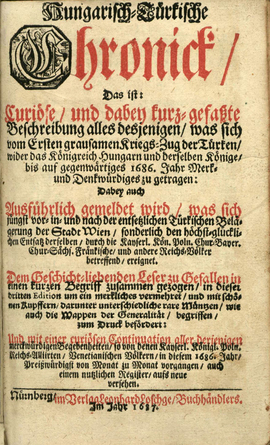 Hungarisch-Türkische
Chronick /
Das ist:
Curiöse / und dabey kurz-gefaßte
Beschreibung alles desjenigen / was sich
vom Ersten grausamen Kriegs-Zug der Türken /
wider das Königreich Hungarn und derselben Könige /
bis auf gegenwärtiges 1686. Jahr Merk-
und Denkwürdiges zu getragen:
Dabey auch
Ausführlich gemeldet wird / was sich
jüngst vor- in- und nach der entsezlichen Türkischen Belä-
gerung der Stadt Wien / sonderlich den höchst-glückli-
chen Entsatz derselben / durch die Kayserl. Kön. Poln. Chur-Bayer.
Chur-Sächs. Fränkische / und andere Reichs-Völker
betreffend / ereignet.
Dem Geschicht-liebenden Leser zu Gefallen in
einen kurzen Begriff zusammen gezogen / in dieser
dritten Edition um ein merkliches vermehret / und mit schö-
nen Kupffern / darunter unterschiedliche rare Männen / wie
auch die Wappen der Generalität / begriffen /
zum Druck befördert:
Und mit einer curiösen Continuation aller derjenigen
merkwürdigen Begebenheiten / so von denen Kayserl. Königl. Poln.
Reichs-Alliirten / Venetianischen Völkern / in diesem 1686. Jahr /
Preißwürdigst von Monat zu Monat vorgangen / auch
einem nutzlichen Register / aufs neue
versehen.
Nürnberg / im Verlag Leonhard Loschge / Buchhändlers.
Im Jahr 1687.